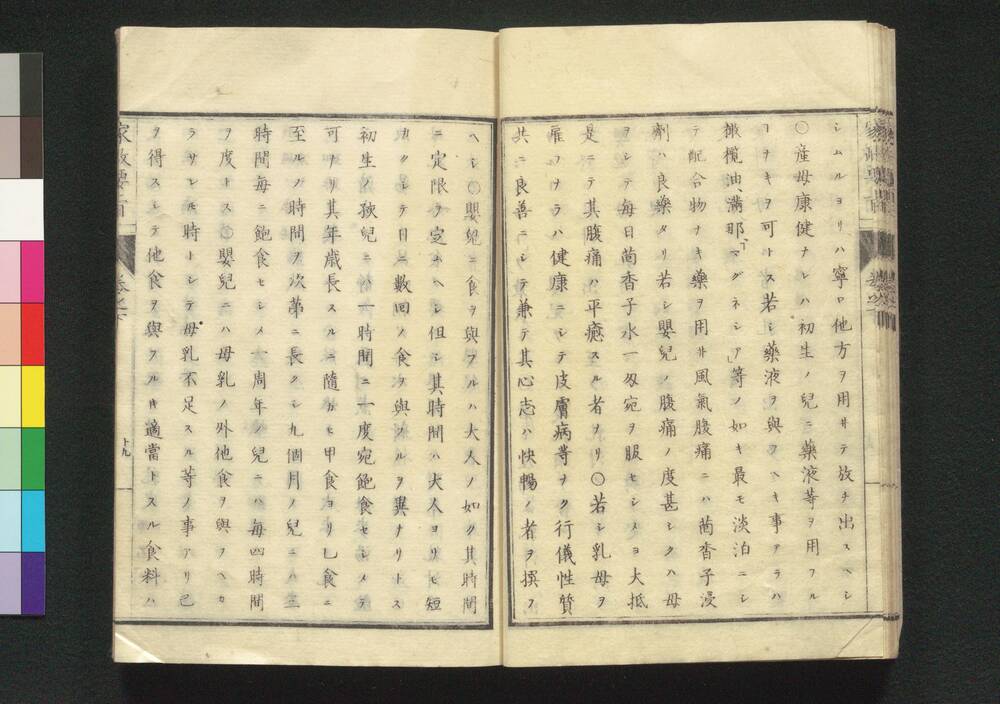 シムルヨリハ寧ロ他方ヲ用井テ放チ出スヘシ
〇産母康健ナレハ初生ノ兒ニ藥液等ヲ用フル
コナキヲ可トス若シ藥液ヲ與フヘキ事アラハ
橄欖油、滿那「マグネシア」等ノ如キ最モ淡泊ニシ
テ配合物ナキ藥ヲ用井風氣腹痛ニハ茴香子浸
劑ハ良藥タリ若シ嬰兒ノ腹痛ノ度甚シクハ母
ヲシテ毎日茴香子水一匁宛ヲ服セシメヨ大抵
是ニテ其腹痛ハ平癒スル者ナリ〇若シ乳母ヲ
雇フナラハ健康ニシテ皮膚病等ナク行儀性質
共ニ良善ニシテ兼テ其心志ハ快暢ノ者ヲ撰フ
ヘシ〇嬰兒ニ食ヲ與フルハ大人ノ如ク其時間
ニ定限ヲ定ムヘシ但シ其時間ハ大人ヨリモ短
カクシテ日ニ數回ノ食ヲ與フルヲ異ナリトス
初生ノ孩兒ニハ一時間ニ一度宛飽食セシメテ
可ナリ其年歳長スルニ隨カヒ甲食ヨリ乙食ニ
至ルノ時間ヲ次第ニ長クシ九個月ノ兒ニハ三
時間毎ニ飽食セシメ一周年ノ兒ニハ毎四時間
ヲ度トス〇嬰兒ニハ母乳ノ外他食ヲ與フヘカ
ラサレ𪜈時トシテ母乳不足スル等ノ事アリ已
ヲ得スシテ他食ヲ與フルキ適當トスル食料ハ
家政要旨
卷之下
十九